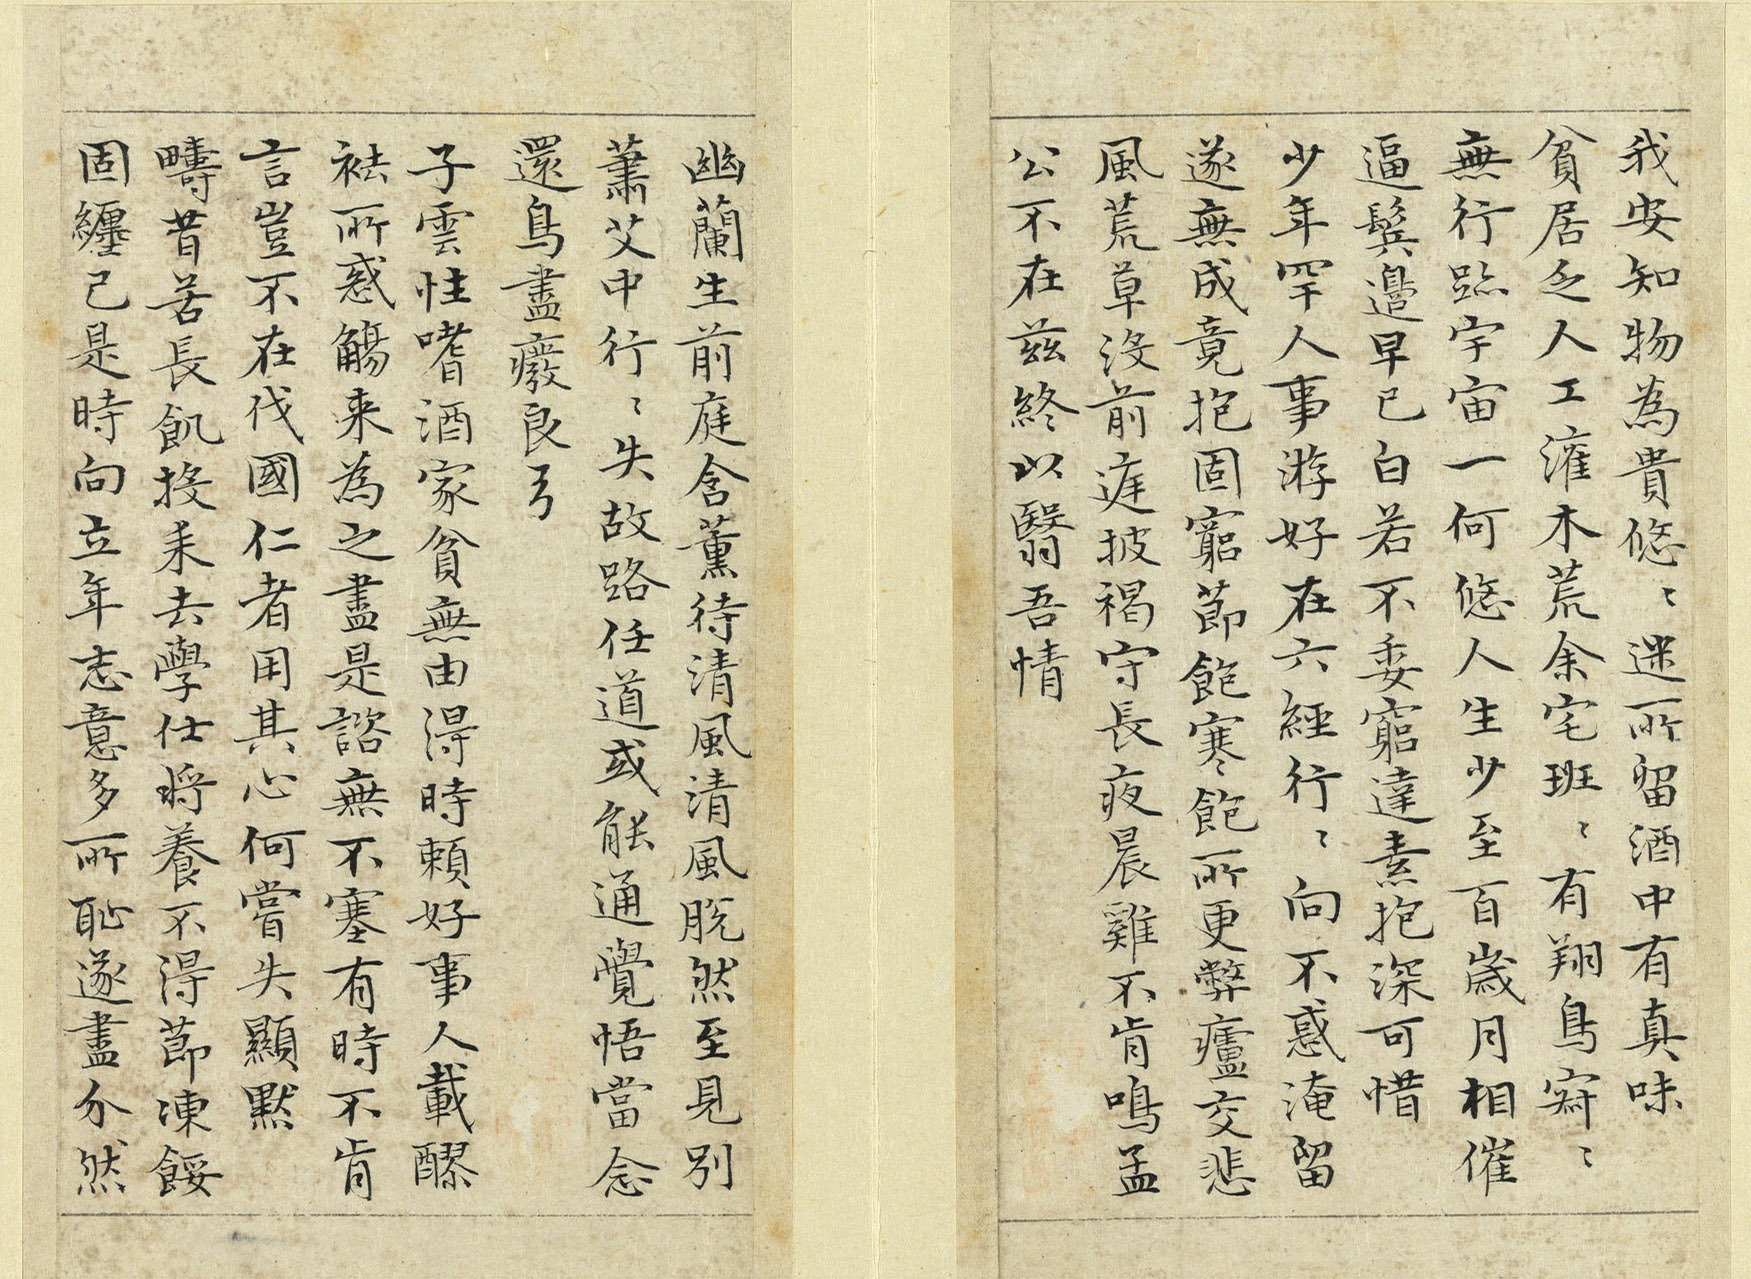 我安知物為貴悠〻迷所留酒中有真味
貧居乏人工灌木荒余宅班〻有翔鳥寂〻
無行跡宇宙一何悠人生少至百歲月相催
逼鬢邊早已白若不委窮達素抱深可惜
少年罕人事游好在六經行〻向不惑淹留
遂無成竟抱固窮節飽寒飽所更弊廬交悲
風荒草沒前庭披褐守長夜晨雞不肯鳴孟
公不在茲終以翳吾情
幽蘭生前庭含薰待清風清風脫然至見別
蕭艾中行〻失故路任道或能通覺悟當念
還鳥盡廢良弓
子雲性嗜酒家貧無由得時賴好事人載醪
祛所惑觴来為之盡是諮無不塞有時不肯
言豈不在伐國仁者用其心何嘗失顯默
疇昔苦長飢投耒去學仕將養不得節凍餒
固纏己是時向立年志意多所恥遂盡介然